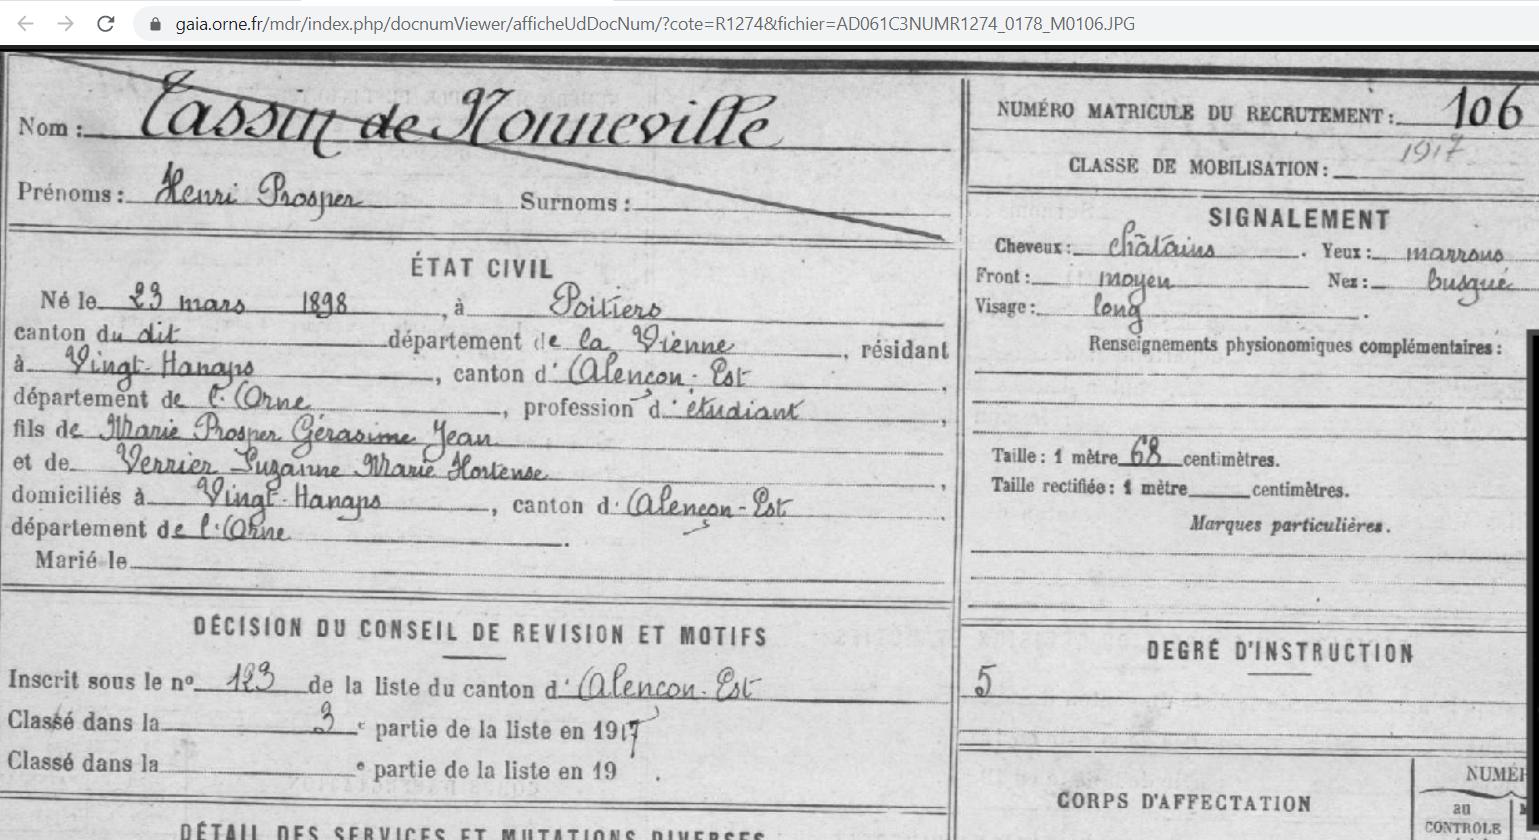 gaia.orne.fr/mdr/index.php/docnumViewer/afficheUdDocNum/?cote=R1274&fichier=AD061C3NUMR1274_0178_M0106.JPG
Nom : Tassin de Nonneville
Prénoms : Henri Prosper Surnoms :
ÉTAT CIVIL
Né le 23 mars 1898, à Poitiers
canton du dit département de la Vienne, résidant
à Vingt-Hanaps, canton d' Alençon-Est,
département de l'Orne, profession d' étudiant,
fils de Marie Prosper Gérasime Jean
et de Verrier Suzanne Marie Hortense,
domiciliés à Vingt-Hanaps, canton d' Alençon-Est
département de l'Orne.
Marié le
DÉCISION DU CONSEIL DE REVISION ET MOTIFS
Inscrit sous le nº 123 de la liste du canton d' Alençon-Est
Classé dans la 3e partie de la liste en 1917
Classé dans la e partie de la liste en 19 .
DÉTAIL DES SERVICES ET MUTATIONS DIVERSES
NUMÉRO MATRICULE DU RECRUTEMENT : 106
CLASSE DE MOBILISATION : 1917
SIGNALEMENT
Cheveux : châtains. Yeux : marrons
Front : moyen Nez : busqué
Visage : long.
Renseignements physionomiques complémentaires :
Taille : 1 mètre 68 centimètres.
Taille rectifiée : 1 mètre centimètres.
Marques particulières.
DEGRÉ D'INSTRUCTION
5
CORPS D'AFFECTATION
NUMÉR
au
CONTROLE